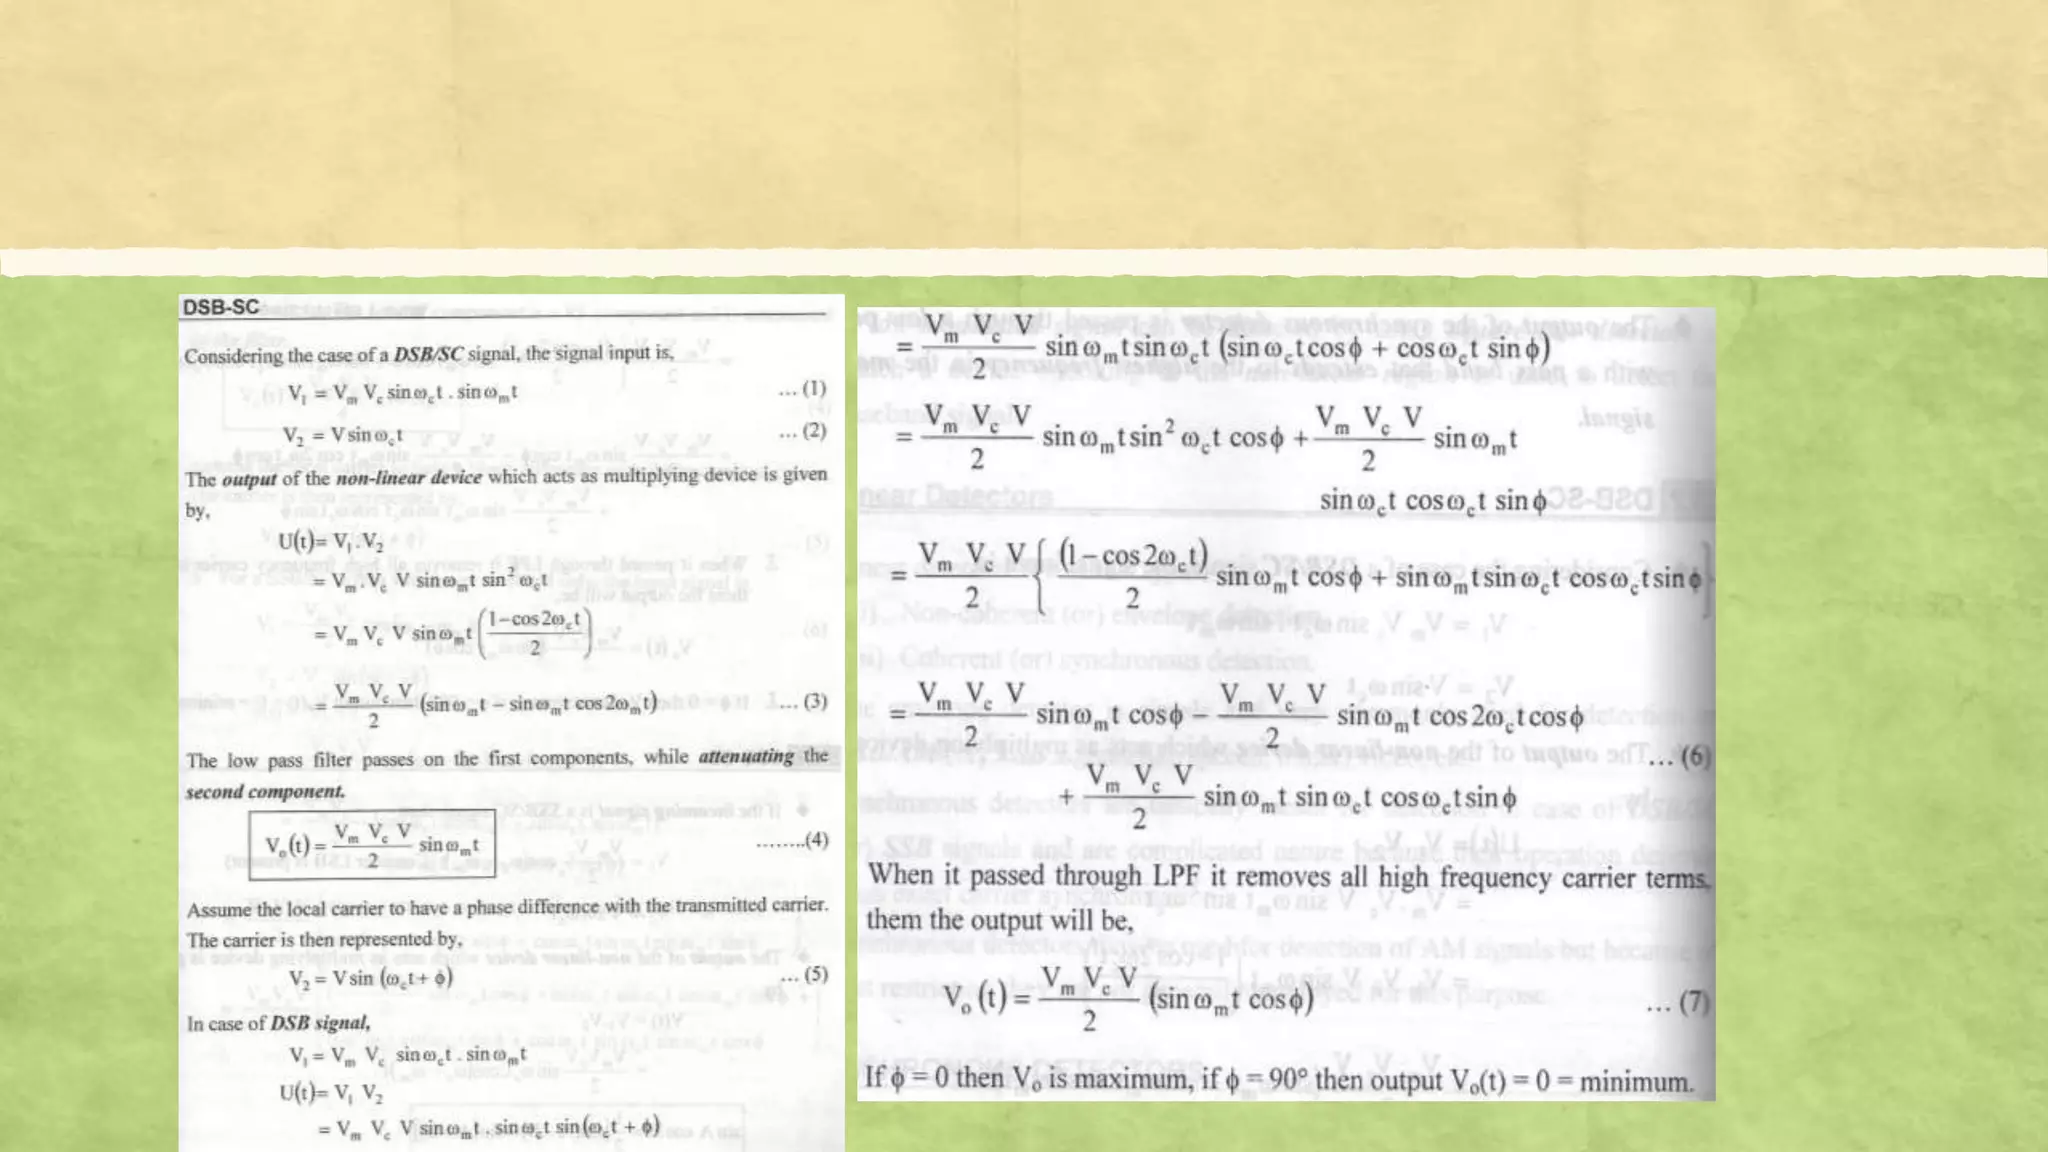 DSB-SC
Considering the case of a DSB/SC signal, the signal input is,
V₁ = Vₘ V꜀ sin ω꜀t . sin ωₘt ... (1)
V₂ = V sin ω꜀t ... (2)
The output of the non-linear device which acts as multiplying device is given
by,
U(t)= V₁.V₂
= Vₘ . V꜀ V sin ωₘt sin² ω꜀t
= Vₘ V꜀ V sin ωₘt ((1 – cos 2ω꜀t) / 2)
= (Vₘ V꜀ V / 2) (sin ωₘt – sin ωₘt cos 2ωₘt) ... (3)
The low pass filter passes on the first components, while attenuating the
second component.
Vₒ(t) = (Vₘ V꜀ V / 2) sin ωₘt ........(4)
Assume the local carrier to have a phase difference with the transmitted carrier.
The carrier is then represented by,
V₂ = V sin (ω꜀t + ϕ) ... (5)
In case of DSB signal,
V₁ = Vₘ V꜀ sin ω꜀t . sin ωₘt
U(t)= V₁ V₂
= Vₘ V꜀ V sin ωₘt . sin ω꜀t sin (ω꜀t + ϕ)
= (Vₘ V꜀ V / 2) sin ωₘt sin ω꜀t (sin ω꜀t cos ϕ + cos ω꜀t sin ϕ)
= (Vₘ V꜀ V / 2) sin ωₘt sin² ω꜀t cos ϕ + (Vₘ V꜀ V / 2) sin ωₘt
sin ω꜀t cos ω꜀t sin ϕ
= (Vₘ V꜀ V / 2) { ((1 – cos 2ω꜀t) / 2) sin ωₘt cos ϕ + sin ωₘt sin ω꜀t cos ω꜀t sin ϕ }
= (Vₘ V꜀ V / 2) sin ωₘt cos ϕ – (Vₘ V꜀ V / 2) sin ωₘt cos 2ω꜀t cos ϕ
... (6)
+ (Vₘ V꜀ V / 2) sin ωₘt sin ω꜀t cos ω꜀t sin ϕ
When it passed through LPF it removes all high frequency carrier terms,
them the output will be,
Vₒ (t) = (Vₘ V꜀ V / 2) (sin ωₘt cos ϕ) ... (7)
If ϕ = 0 then Vₒ is maximum, if ϕ = 90° then output Vₒ(t) = 0 = minimum.